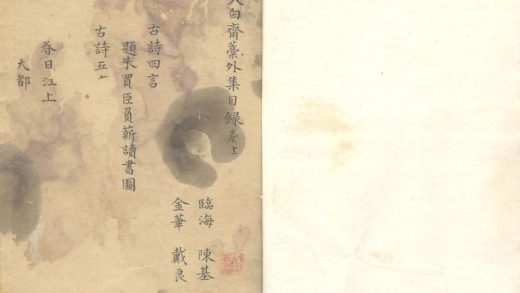 白齋藁外集目録 卷上
臨海 陳基
金華 戴良
古詩四言
題朱買臣負薪讀書圖
古詩五
春日江上
大都